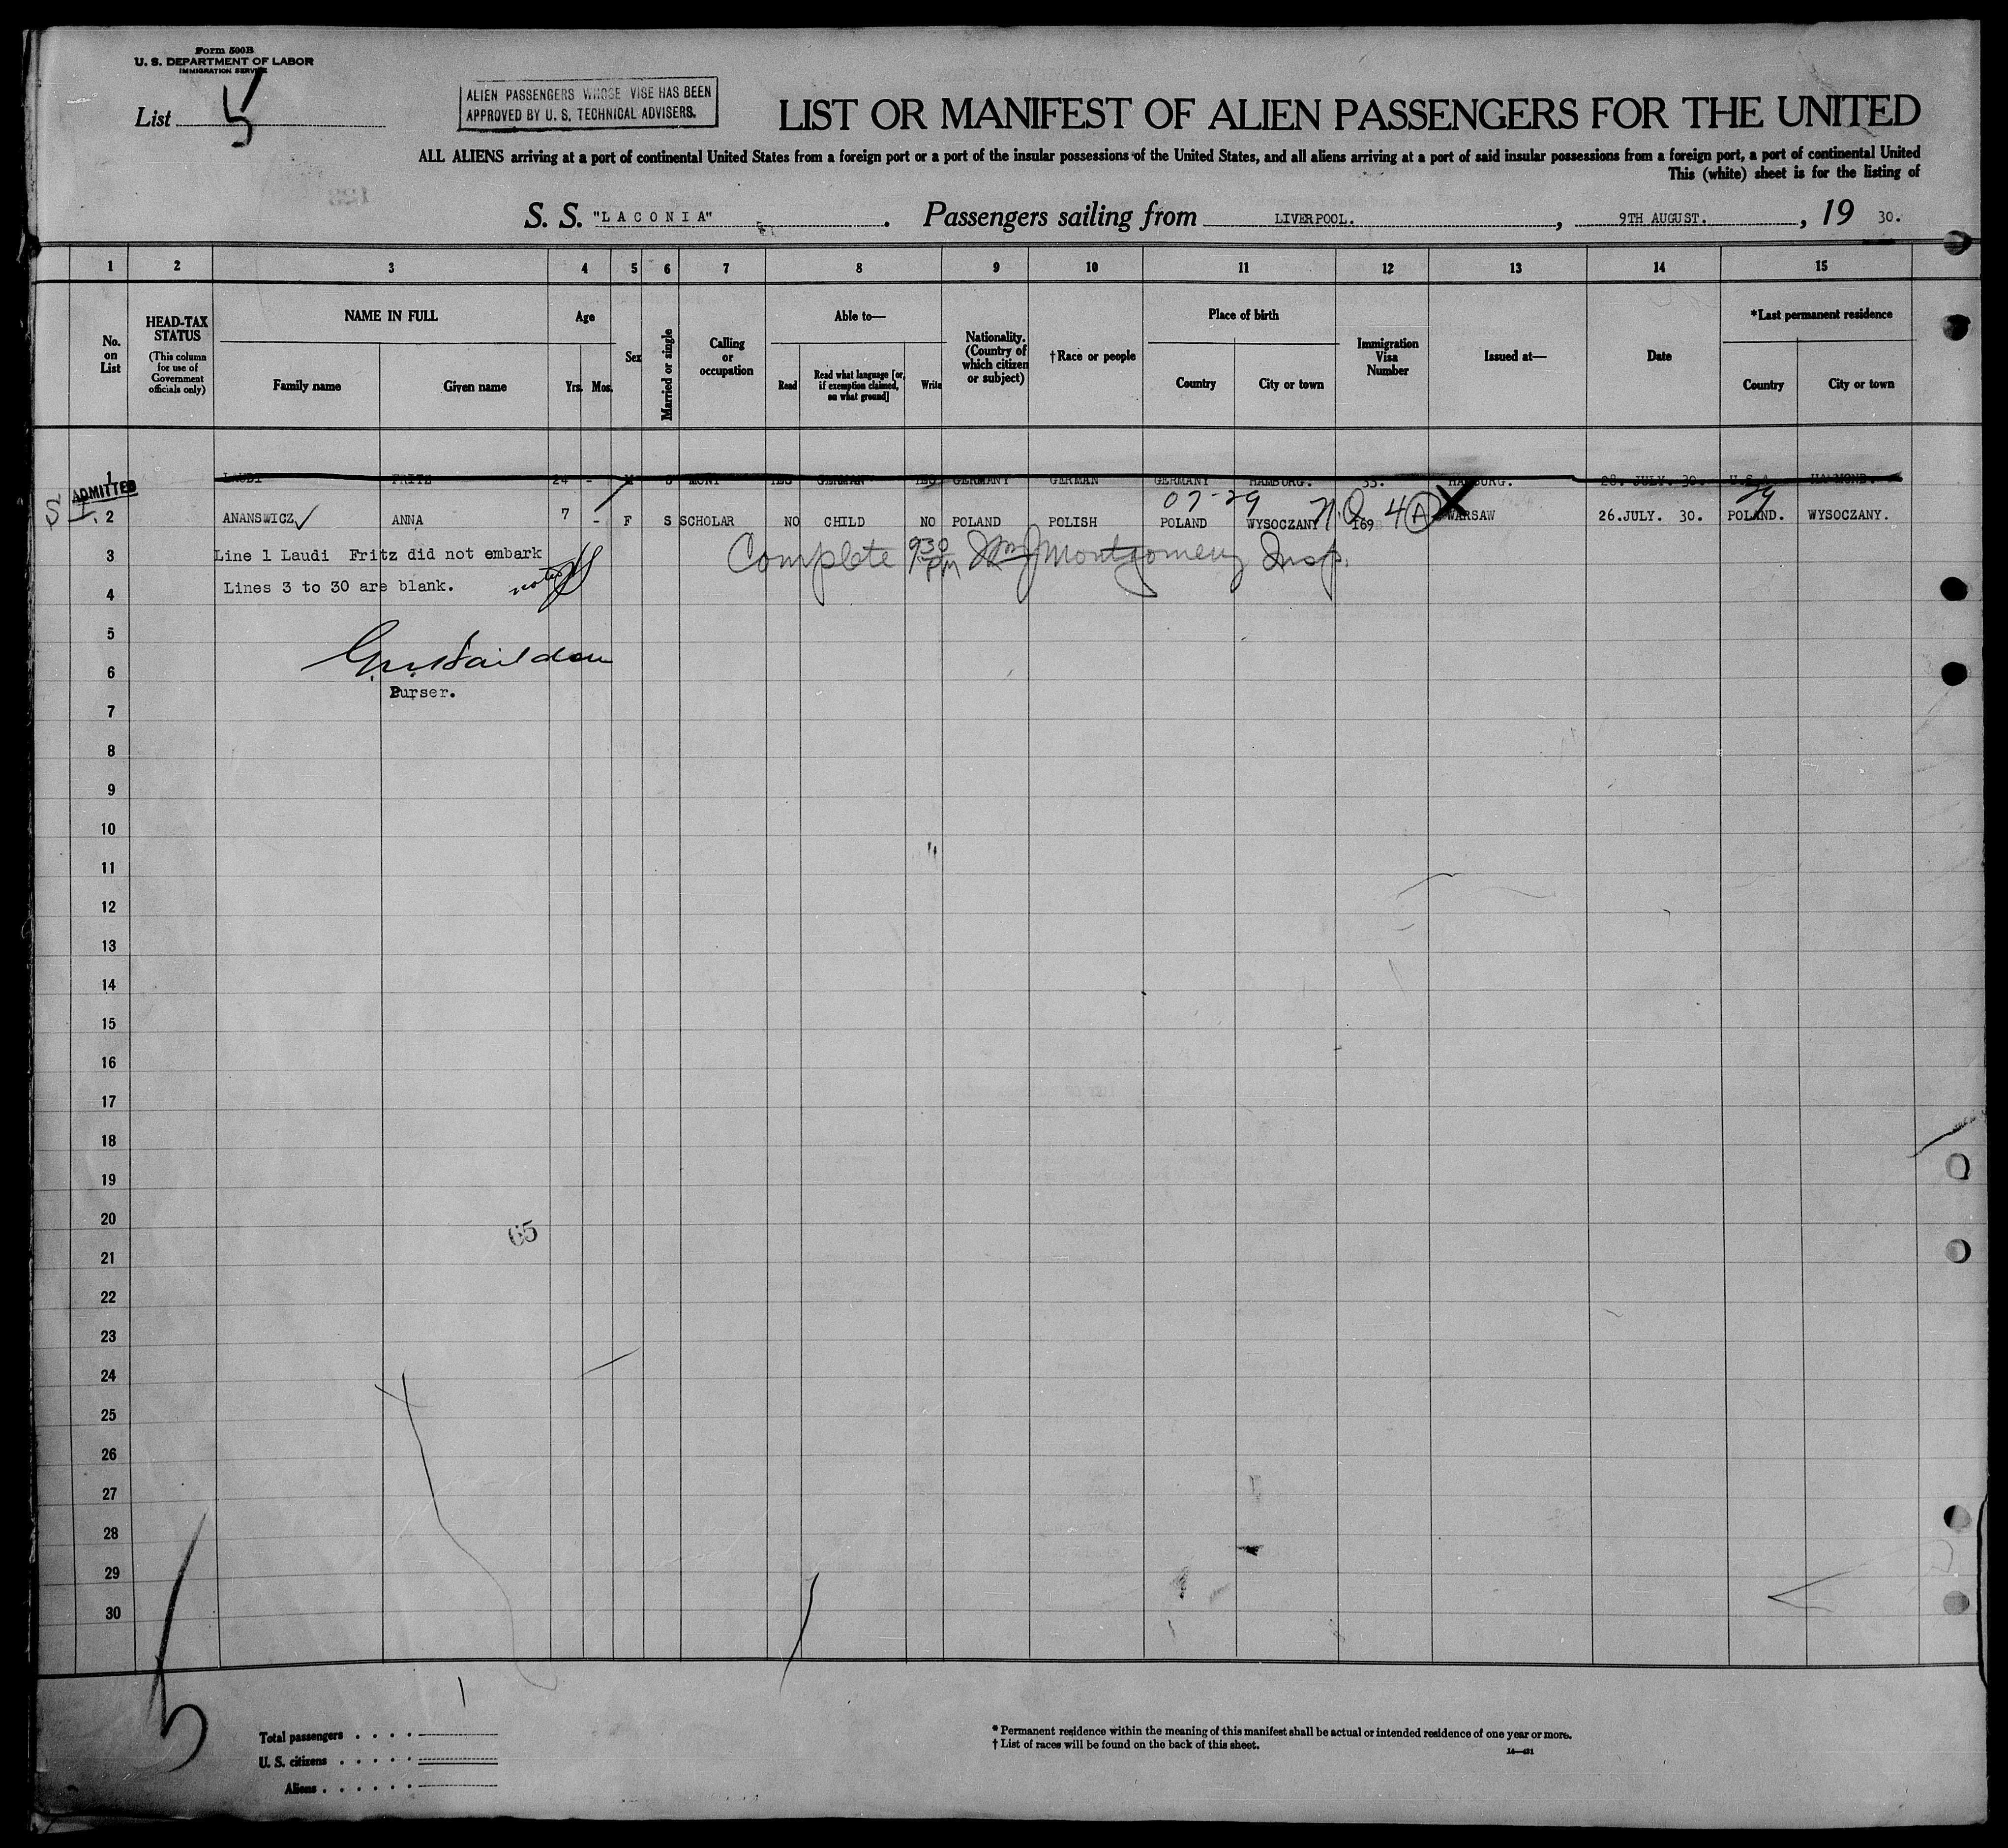 Form 500B
U. S. DEPARTMENT OF LABOR
IMMIGRATION SERVICE
List 5
ALIEN PASSENGERS WHOSE VISE HAS BEEN
APPROVED BY U. S. TECHNICAL ADVISERS.
LIST OR MANIFEST OF ALIEN PASSENGERS FOR THE UNITED
ALL ALIENS arriving at a port of continental United States from a foreign port or a port of the insular possessions of the United States, and all aliens arriving at a port of said insular possessions from a foreign port, a port of continental United
This (white) sheet is for the listing of
S. S. "LACONIA" . Passengers sailing from LIVERPOOL. , 9TH AUGUST. , 19 30.
1 2 3 4 5 6 7 8 9 10 11 12 13 14 15
No. on List
HEAD-TAX STATUS
(This column for use of Government officials only)
NAME IN FULL
Family name Given name
Age
Yrs. Mos.
Sex
Married or single
Calling or occupation
Able to—
Read
Read what language [or, if exemption claimed, on what ground]
Write
Nationality. (Country of which citizen or subject)
†Race or people
Place of birth
Country City or town
Immigration Visa Number
Issued at—
Date
*Last permanent residence
Country City or town
1 LAUDI FRITZ 24 - M S YES GERMAN YES GERMANY GERMAN GERMANY HAMBURG. 35. HAMBURG. 28. JULY. 30. U.S.A. HAMMOND.
ADMITTED
07-29
S 2 ANANSWICZ ANNA 7 - F S SCHOLAR NO CHILD NO POLAND POLISH POLAND WYSOCZANY 169 4 A WARSAW 26.JULY. 30. POLAND. WYSOCZANY.
3 Line 1 Laudi Fritz did not embark
Complete 930 PM Montgomery Insp.
4 Lines 3 to 30 are blank. noted
5
6
Purser.
7
8
9
10
11
12
13
14
15
16
17
18
19
20
65
21
22
23
24
25
26
27
28
29
30
5
1
Total passengers . . . .
U. S. citizens . . . . .
Aliens . . . . . .
* Permanent residence within the meaning of this manifest shall be actual or intended residence of one year or more.
† List of races will be found on the back of this sheet.